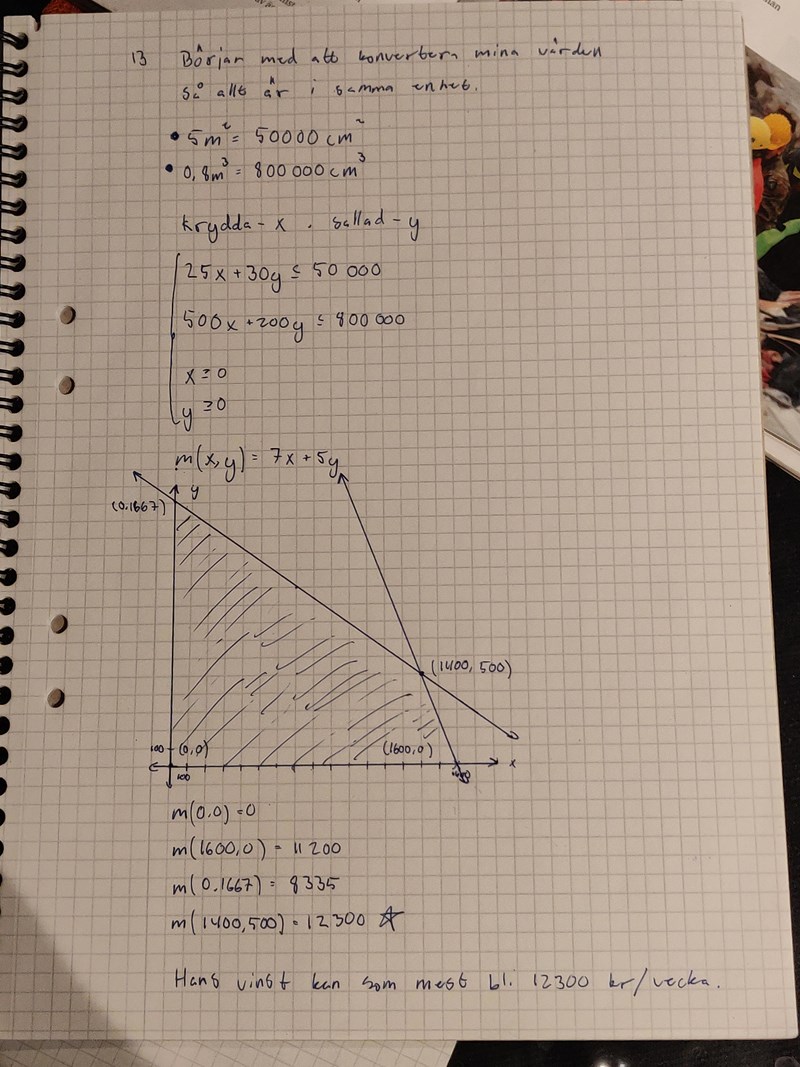 13 Börjar med att konvertera mina värden
så allt är i samma enhet.
• 5m² = 50000 cm²
• 0,8m³ = 800 000 cm³
krydda - x . sallad - y
25x + 30y ≤ 50 000
500x + 200y ≤ 800 000
x ≥ 0
y ≥ 0
m(x,y) = 7x + 5y
y
(0,1667)
(1400, 500)
100 (0,0) (1600,0)
x
100
m(0,0) = 0
m(1600,0) = 11 200
m(0,1667) = 8335
m(1400,500) = 12 300 ☆
Hans vinst kan som mest bli 12300 kr/vecka.